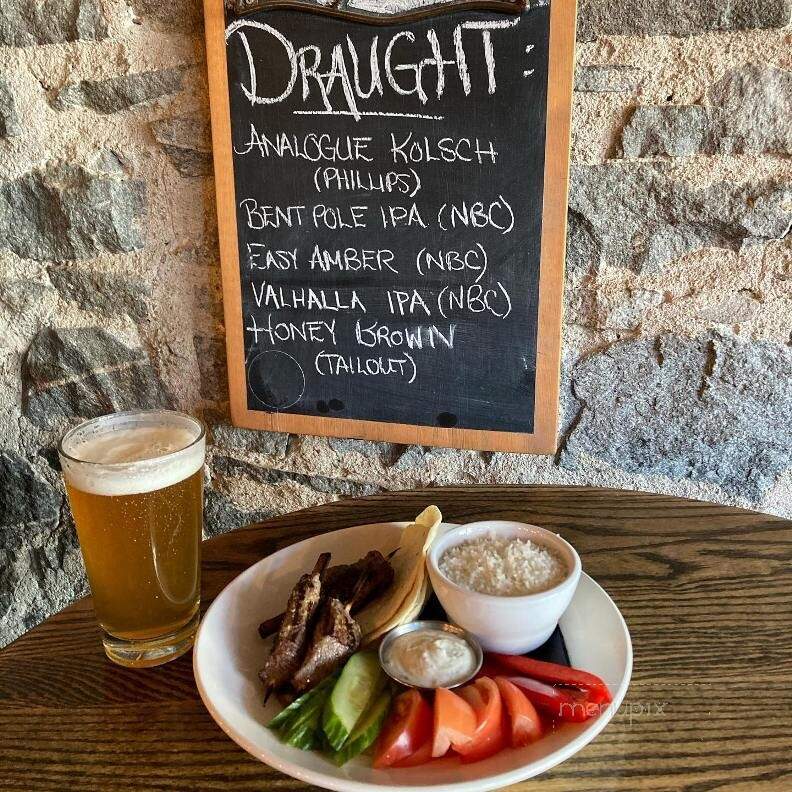 DRAUGHT:
ANALOGUE KOLSCH
(PHILLIPS)
BENT POLE IPA (NBC)
EASY AMBER (NBC)
VALHALLA IPA (NBC)
HONEY BROWN
(TAILOUT)
menupix